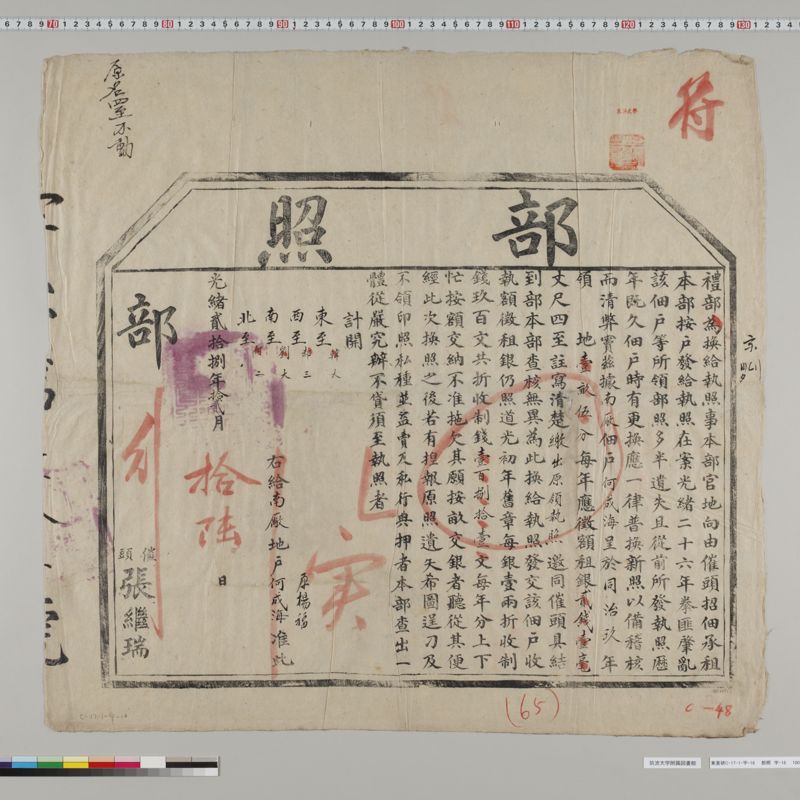 符
部照
禮部為換給執照事本部官地向由催頭招佃承租
本部按戶發給執照在案光緒二十六年拳匪肇亂
該佃戶等所領部照多半遺失且從前所發執照歷
年既久佃戶時有更換應一律普換新照以備稽核
而清弊竇茲據南厰佃戶何成海呈於同治玖年
領 地壹畝伍分每年應徵額租銀貳錢壹毫
丈尺四至註寫清楚繳出原領執照邀同催頭具結
到部本部查核無異為此換給執照發交該佃戶收
執額徵租銀仍照道光初年舊章每銀壹兩折收制
錢玖百文共折收制錢壹百捌拾壹文每年分上下
忙按額交納不准拖欠其願按畝交銀者聽從其便
經此次換照之後若有捏報原照遺失希圖逞刁及
不領印照私種並盜賣及私行典押者本部查出一
體從嚴究辦不貸須至執照者
計開
東至
西至
南至
北至
原楊福
右給南厰地戶何成海准此
光緒貳拾捌年拾貳月 拾陸 日
部
催頭 張繼瑞
实
原名四至不動
(65)
C-48
C-17-1-字-16
筑波大学附属図書館